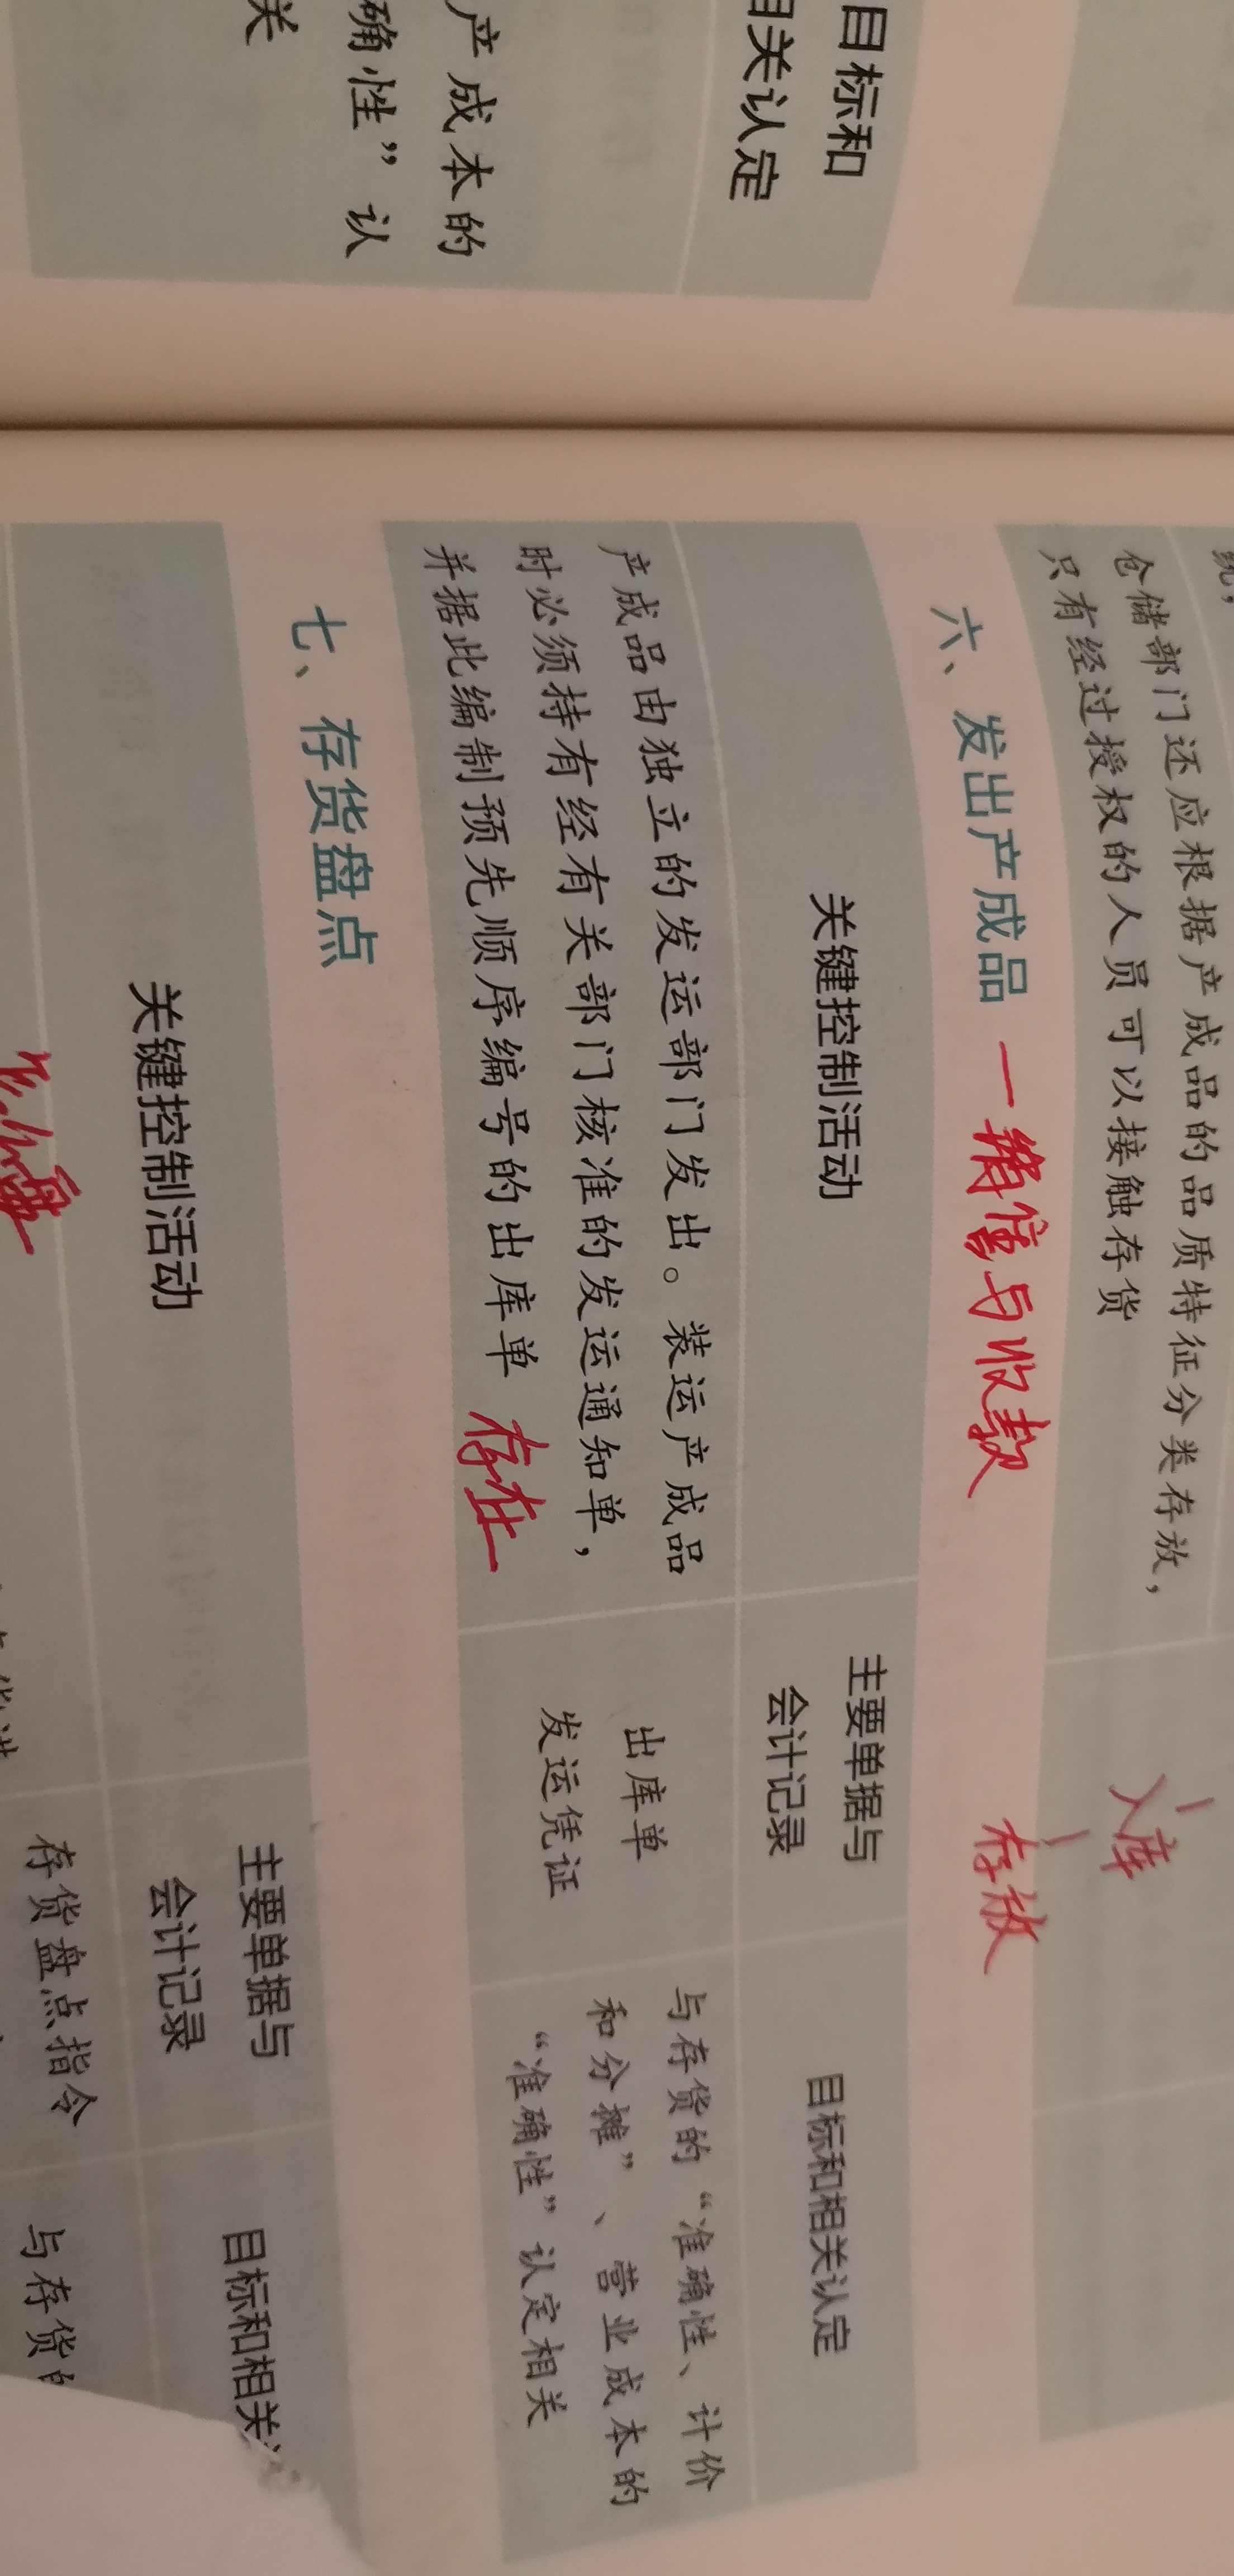 目标和
相关认定
产成本的
确性”认
关
统，
仓储部门还应根据产成品的品质特征分类存放，
只有经过授权的人员可以接触存货
入库
存放
六、发出产成品 — 销售与收款
关键控制活动
主要单据与
会计记录
目标和相关认定
产成品由独立的发运部门发出。装运产成品
时必须持有经有关部门核准的发运通知单，
并据此编制预先顺序编号的出库单 存在
出库单
发运凭证
与存货的“准确性、计价
和分摊”、营业成本的
“准确性”认定相关
七、存货盘点
关键控制活动
主要单据与
会计记录
目标和相关
存货盘点指令
与存货的